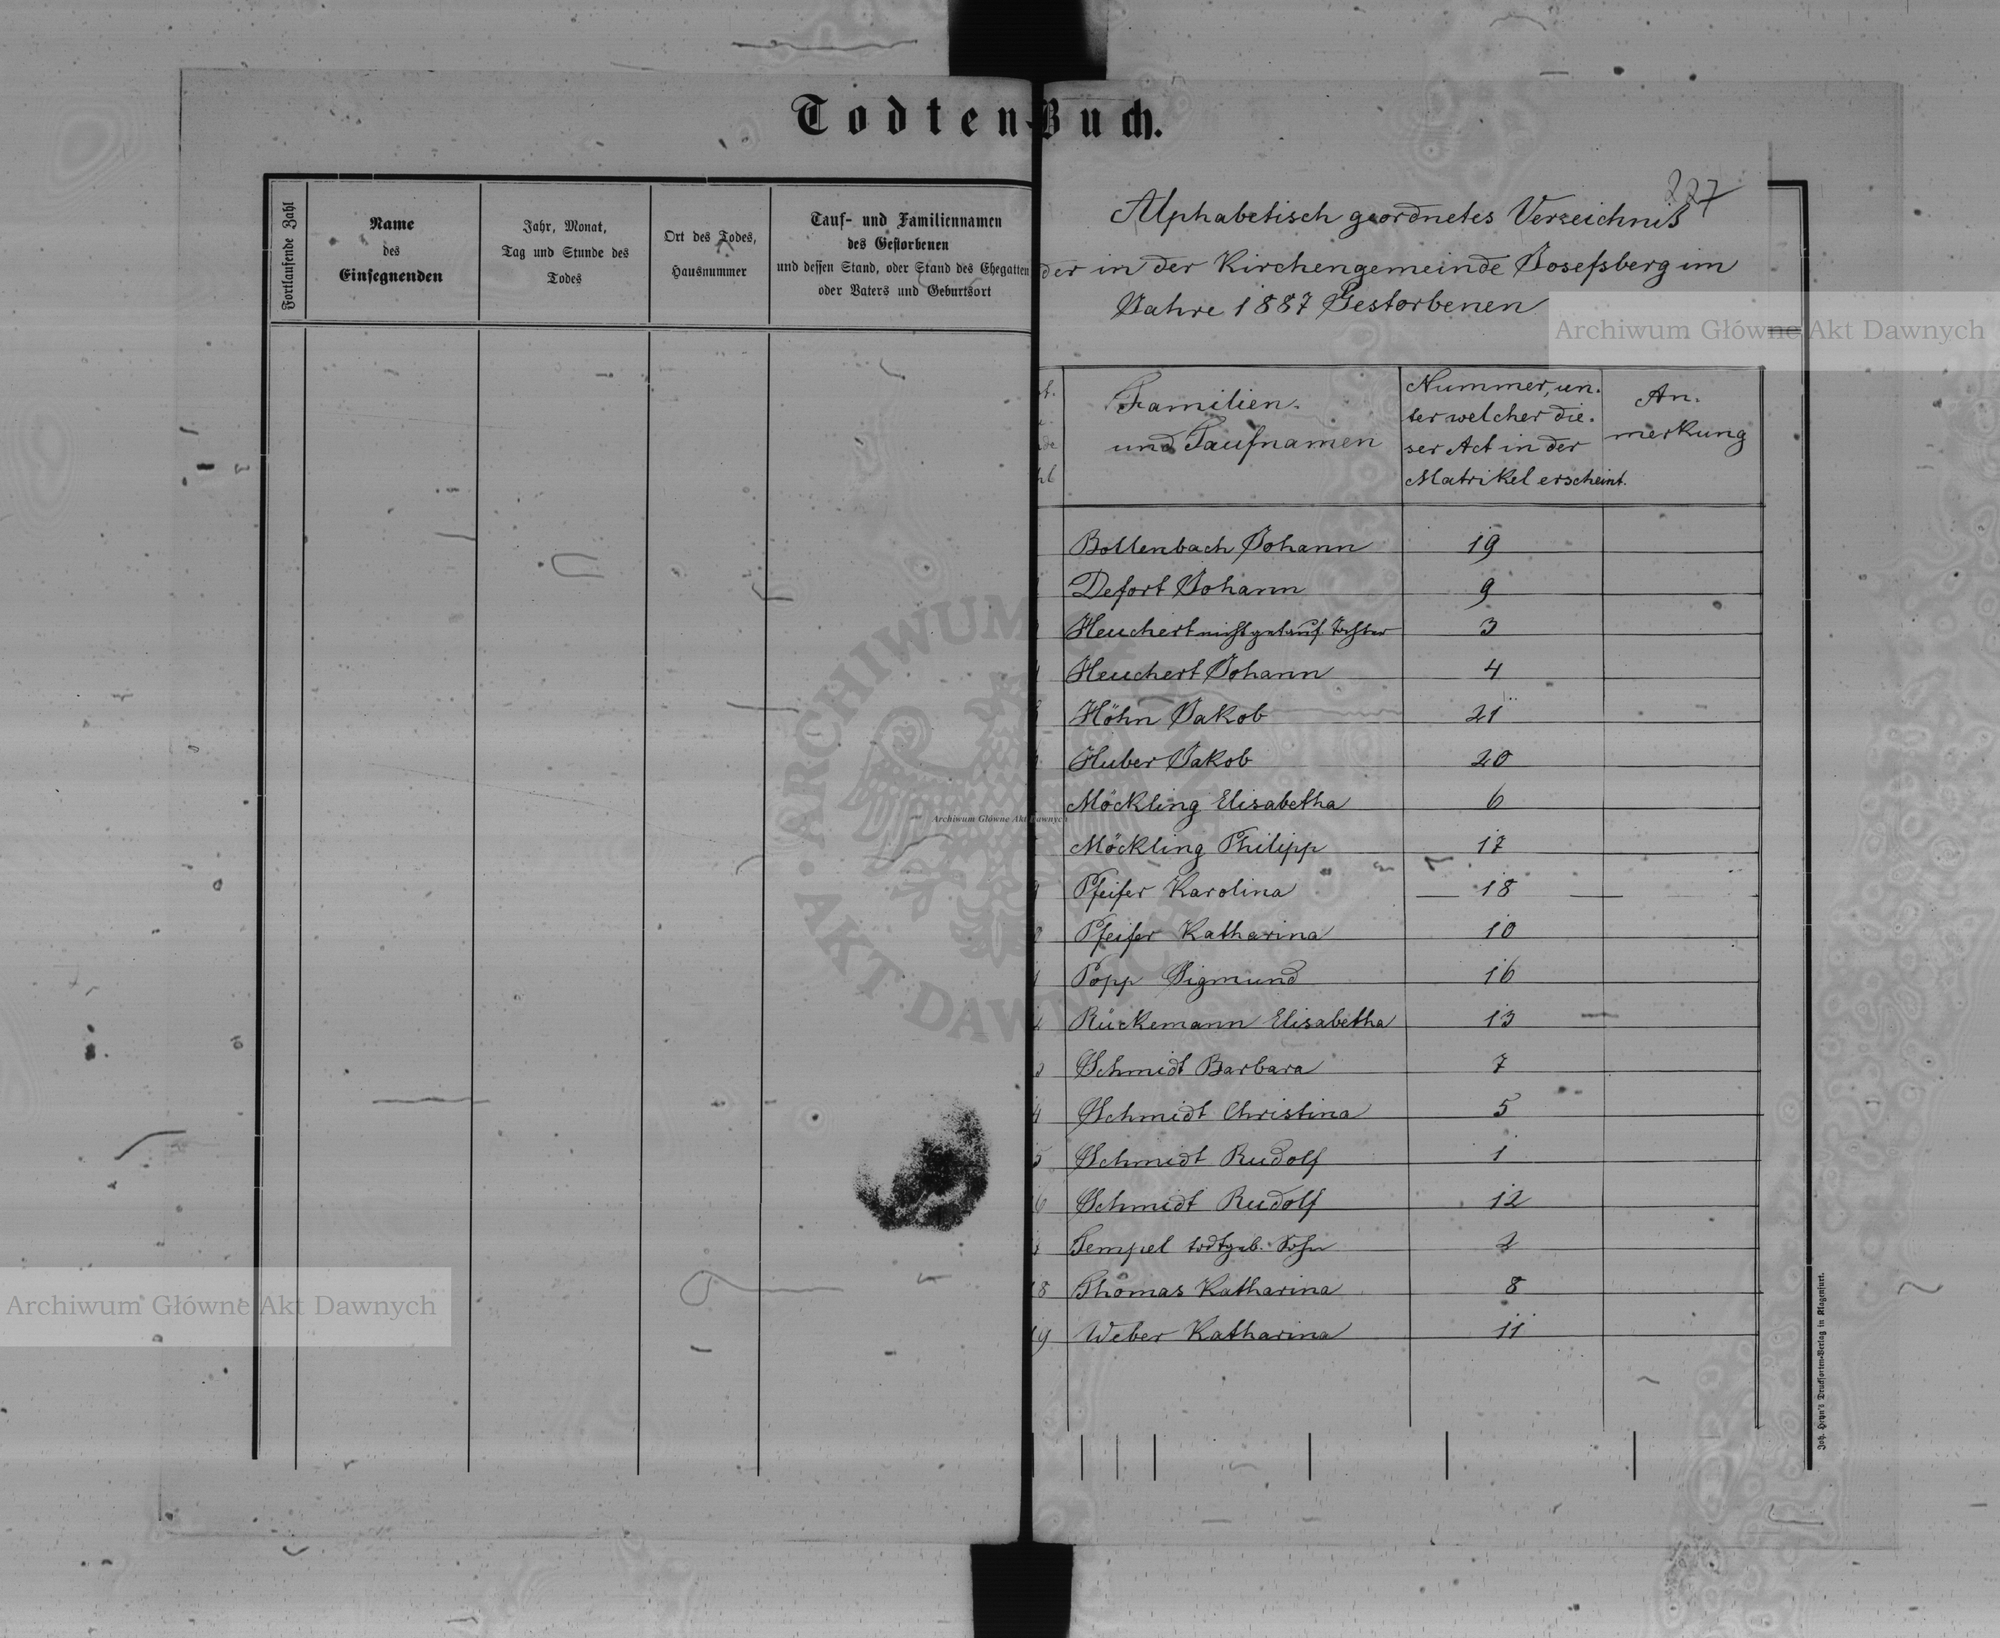 Todten-Buch.
Fortlaufende Zahl
Name
des
Einsegnenden
Jahr, Monat,
Tag und Stunde des
Todes
Ort des Todes,
Hausnummer
Tauf- und Familiennamen
des Gestorbenen
und dessen Stand, oder Stand des Ehegatten
oder Vaters und Geburtsort
227
Alphabetisch geordnetes Verzeichniß
der in der Kirchengemeinde Josefsberg im
Jahre 1887 Gestorbenen
Archiwum Główne Akt Dawnych
Familien-
und Taufnamen
Nummer, un-
ter welcher die-
ser Act in der
Matrikel erscheint.
An-
merkung
Bollenbach Johann 19
Defort Johann 9
Heuchert nicht getauf. Tochter 3
Heuchert Johann 4
Höhn Jakob 21
Huber Jakob 20
Möckling Elisabetha 6
Möckling Philipp 17
Pfeifer Karolina 18
Pfeifer Katharina 10
Popp Sigmund 16
Rückemann Elisabetha 13
Schmidt Barbara 7
4 Schmidt Christina 5
5 Schmidt Rudolf 1
6 Schmidt Rudolf 12
Tempel todtgeb. Sohn 2
18 Thomas Katharina 8
19 Weber Katharina 11
ARCHIWUM
AKT DAWN
Archiwum Główne Akt Dawnych
Archiwum Główne Akt Dawnych
Joh. Heyn's Drucksorten-Verlag in Klagenfurt.